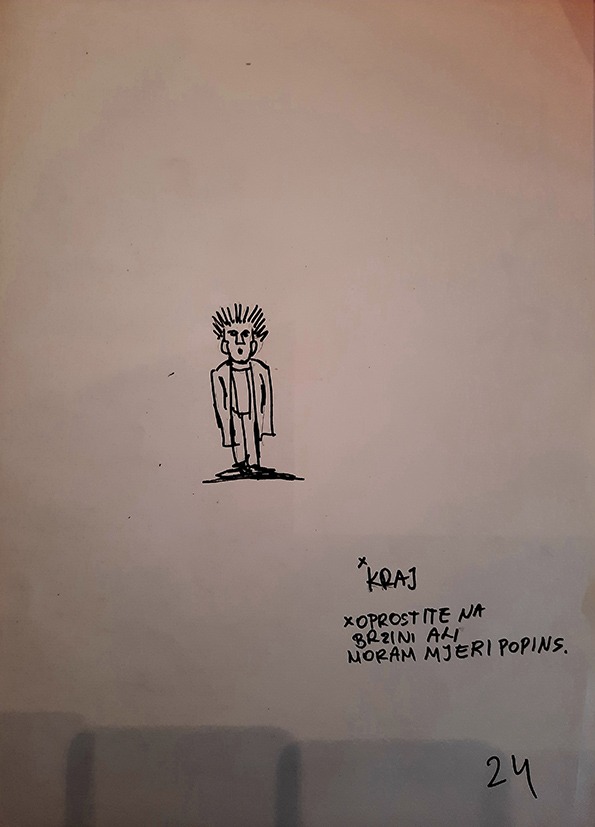 *KRAJ
*OPROSTITE NA
BRZINI ALI
MORAM MJERI POPINS.
24